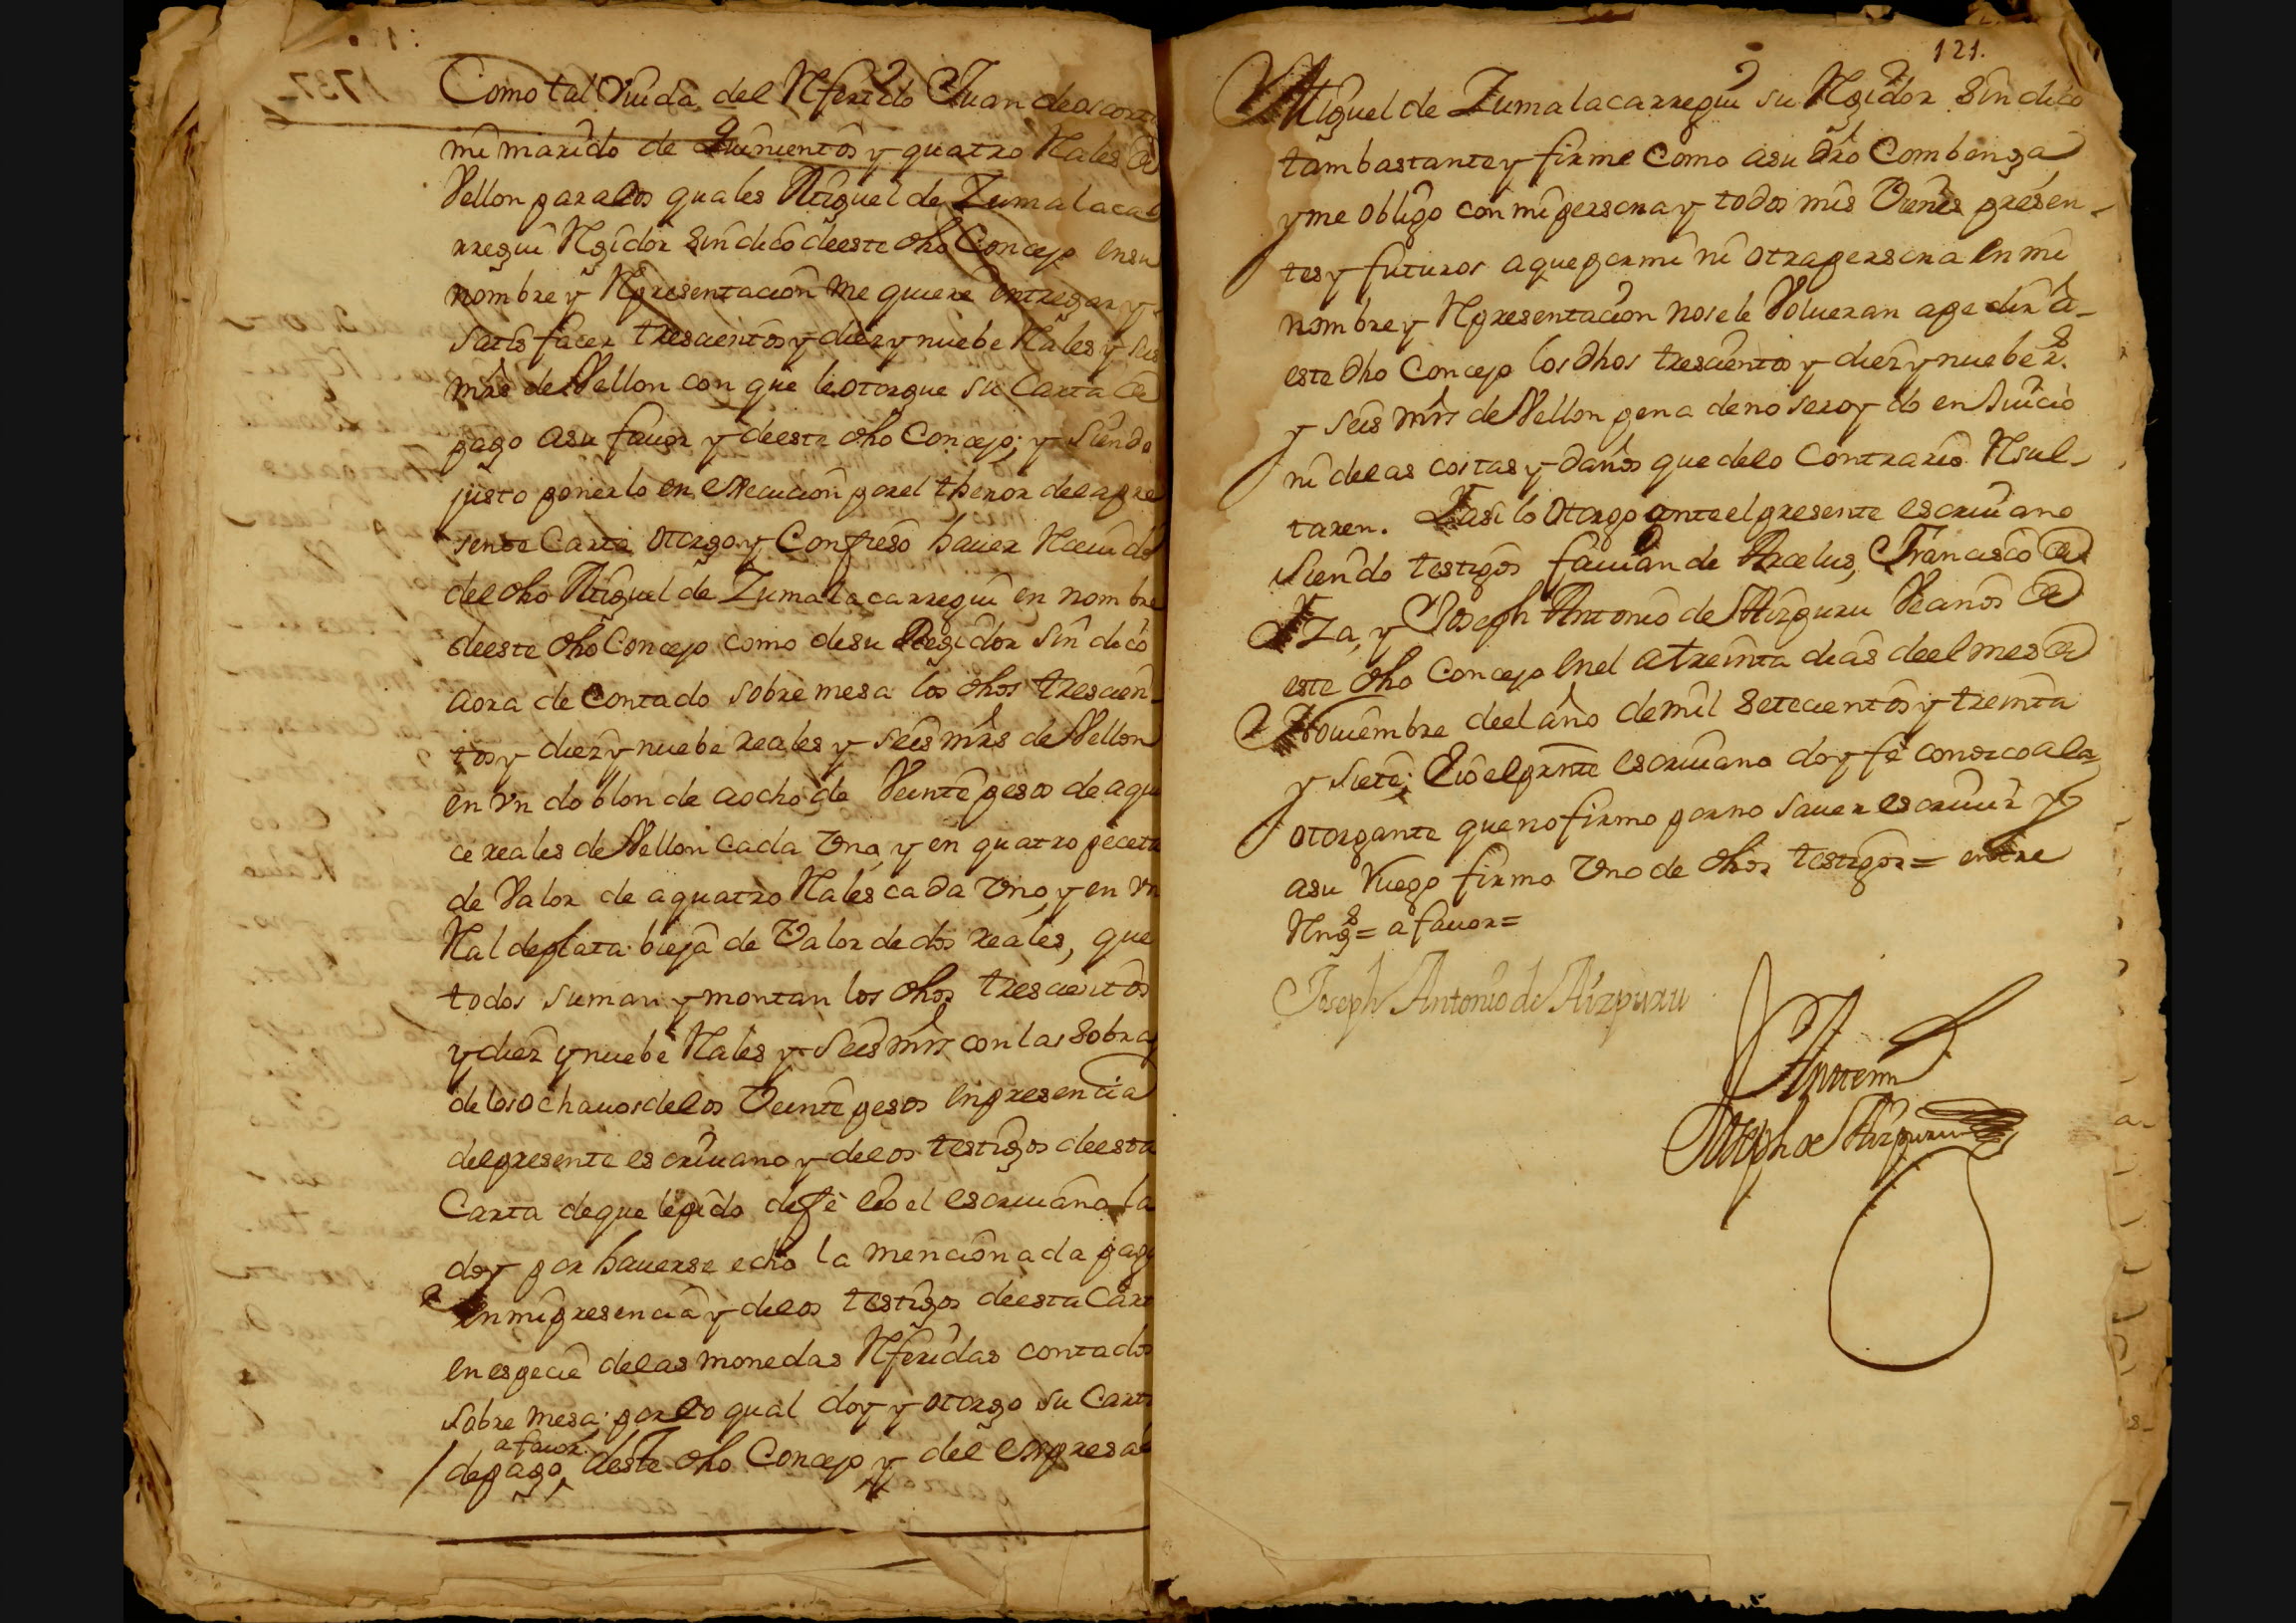 Como tal Viuda del Rferido Juan de ascorta
mi marido de Quinientos y quatro Rales de
Vellon para los quales Miguel de Zumalaca
rregui Rgidor Sindico deeste dho Concejo en su
nombre y Rpresentacion me quiere entregar y
satisfacer trescientos y diez y nuebe Rales y seis
mrs de Vellon con que le otorgue su Carta de
pago asu favor y deeste dho Concejo; y siendo
justo ponerlo en execucion por el thenor dela pre
sente Carta otorgo y Confieso haver Rcivido
del dho Miguel de Zumalacarregui en nombre
deeste dho Concejo como de su Regidor Sindico
aora de Contado sobre mesa los dhos trescien-
tos y diez y nuebe reales y seis mrs de Vellon
en vn doblon de aocho de Veinte pesos de aquin
ce reales de Vellon cada Vno, y en quatro peceta
de Valor de aquatro Rales cada Vno, y en vn
Ral de plata bieja de Valor de dos reales, que
todos suman y montan los dhos trescientos
y diez y nuebe Rales y seis mrs con las sobras
de los ochavos delos Veinte pesos en presencia
del presente escrivano y delos testigos deesta
Carta de que le pido de fe e io el escrivano la
doy por haverse echo la mencionada paga
en mi presencia y delos testigos deesta Cart
en especie delas monedas Rferidas contados
sobre mesa; por lo qual doy y otorgo su Carta
a favor
de pago deste dho Concejo y del expresado
121.
Miguel de Zumalacarregui su Rgidor Sindico
tam bastante y firme Como asu dro Combenga
y me obligo con mi persona y todos mis Vienes presen-
tes y futuros a que por mi ni otra persona en mi
nombre y Rpresentacion no se le Volveran a pedir a-
este dho Concejo los dhos trescientos y diez y nuebe rs.
y seis mrs de Vellon pena de no ser oydo en Juicio
ni de las costas y daños que delo Contrario Rsul-
taren. Y asi lo otorgo ante el presente escrivano
siendo testigos favian de Arcelus, Francisco de
Iza, y Joseph Antonio de Aizpuru Vecinos de
este dho Concejo en el a treinta dias de el mes de
Noviembre de el año de mil setecientos y treinta
y siete; E io el prnte escrivano doy fe conozco a la
otorgante que no firmo por no saver escrivir y
asu Ruego firmo Vno de dhos testigos = entre
Rngs = a favor =
Joseph Antonio de Aizpuru
Ante mi
Joseph de Aizpuru